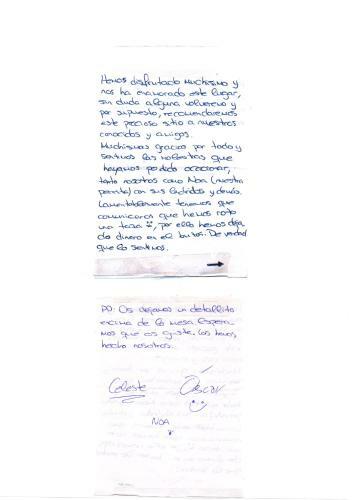 Hemos disfrutado muchísimo y
nos ha enamorado este lugar,
sin duda alguna volveremos y
por supuesto, recomendaremos
este precioso sitio a nuestros
conocidos y amigos.
Muchísimas gracias por todo y
sentimos las molestias que
hayamos podido ocasionar,
tanto nosotros como Noa (nuestra
perrita) con sus ladridos y demás.
Lamentablemente tenemos que
comunicaros que hemos roto
una taza, por ello hemos deja
do dinero en el . De verdad
que lo sentimos.
PD: Os dejamos un detallito
encima de la mesa. Espera
mos que os guste. Los hemos
hecho nosotros.
Celeste Óscar
NOA